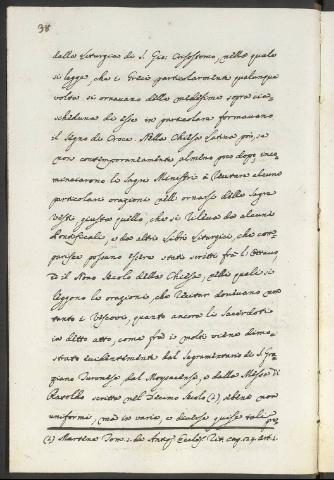 38
dalla Liturgia di S. Gio: Crisostomo, nella quale
si legge, che i Greci particolarmente qualunque
volta si ornavano della medesima sopra cia=
scheduna di esse in particolare formavano
il segno di Croce. Nella Chiesa Latina poi, se
non contemporaneamente almeno poco dopo, inco=
minciarono li Sagri Ministri à recitare alcune
particolari orazioni nell' ornarsi delle Sagre
vesti, giusta quello, che si rileva da alcuni
Pontificali, e da altri Libri Liturgici, che
possano essere stati scritti frà l'Ottavo
e il Nono Secolo della Chiesa, nelli quali si
leggono le orazioni, che recitar dovevano non
tanto i Vescovi, quanto ancora li Sacerdoti
in detto atto, come frà i molti viene dimo=
strato evidentemente dal Sagramentario di S. Gra=
ziano Turonese, dal Moysacense, e dalla Messa di
Ratoldo scritta nel Decimo Secolo (2), ebene non
uniformi, mà in varie, e diverse guise tali
pre
(2) Martene Tom. 1. de Antiq. Eccles. Rit. cap. 4. art. 1.